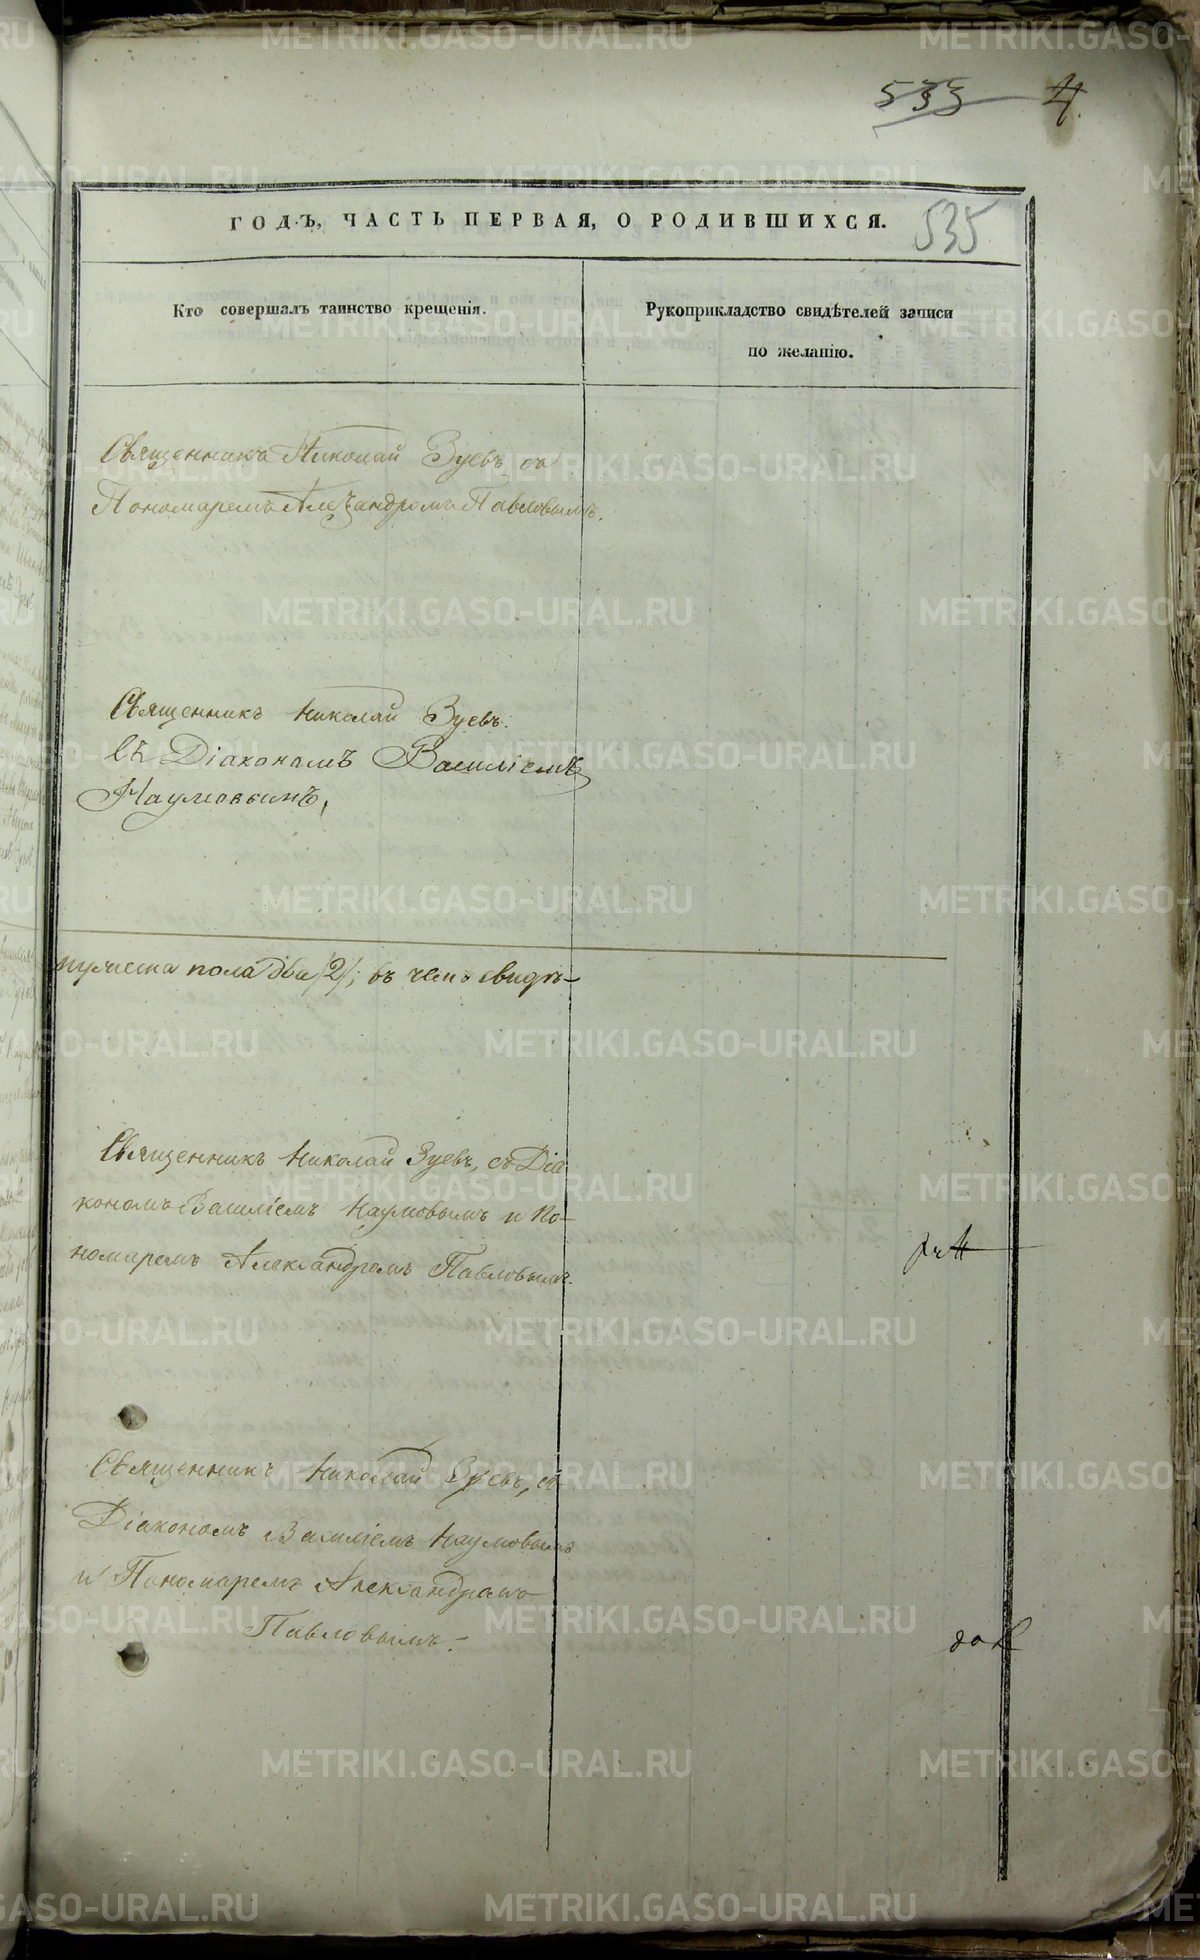 533 4.
ГОДЪ, ЧАСТЬ ПЕРВАЯ, О РОДИВШИХСЯ.
535
Кто совершалъ таинство крещенія.
Рукоприкладство свидѣтелей записи
по желанію.
Священникъ Николай Зуевъ съ
Пономаремъ Александромъ Павловымъ.
Священникъ Николай Зуевъ.
съ Діакономъ Василіемъ
Наумовымъ,
мужеска пола два /2/; въ чемъ свидѣ-
Священникъ Николай Зуевъ, съ Діа
кономъ Василіемъ Наумовымъ и По-
номаремъ Александромъ Павловымъ.
Священникъ Николай Зуевъ, съ
Діакономъ Василіемъ Наумовымъ
и Пономаремъ Александромъ
Павловымъ.-
METRIKI.GASO-URAL.RU